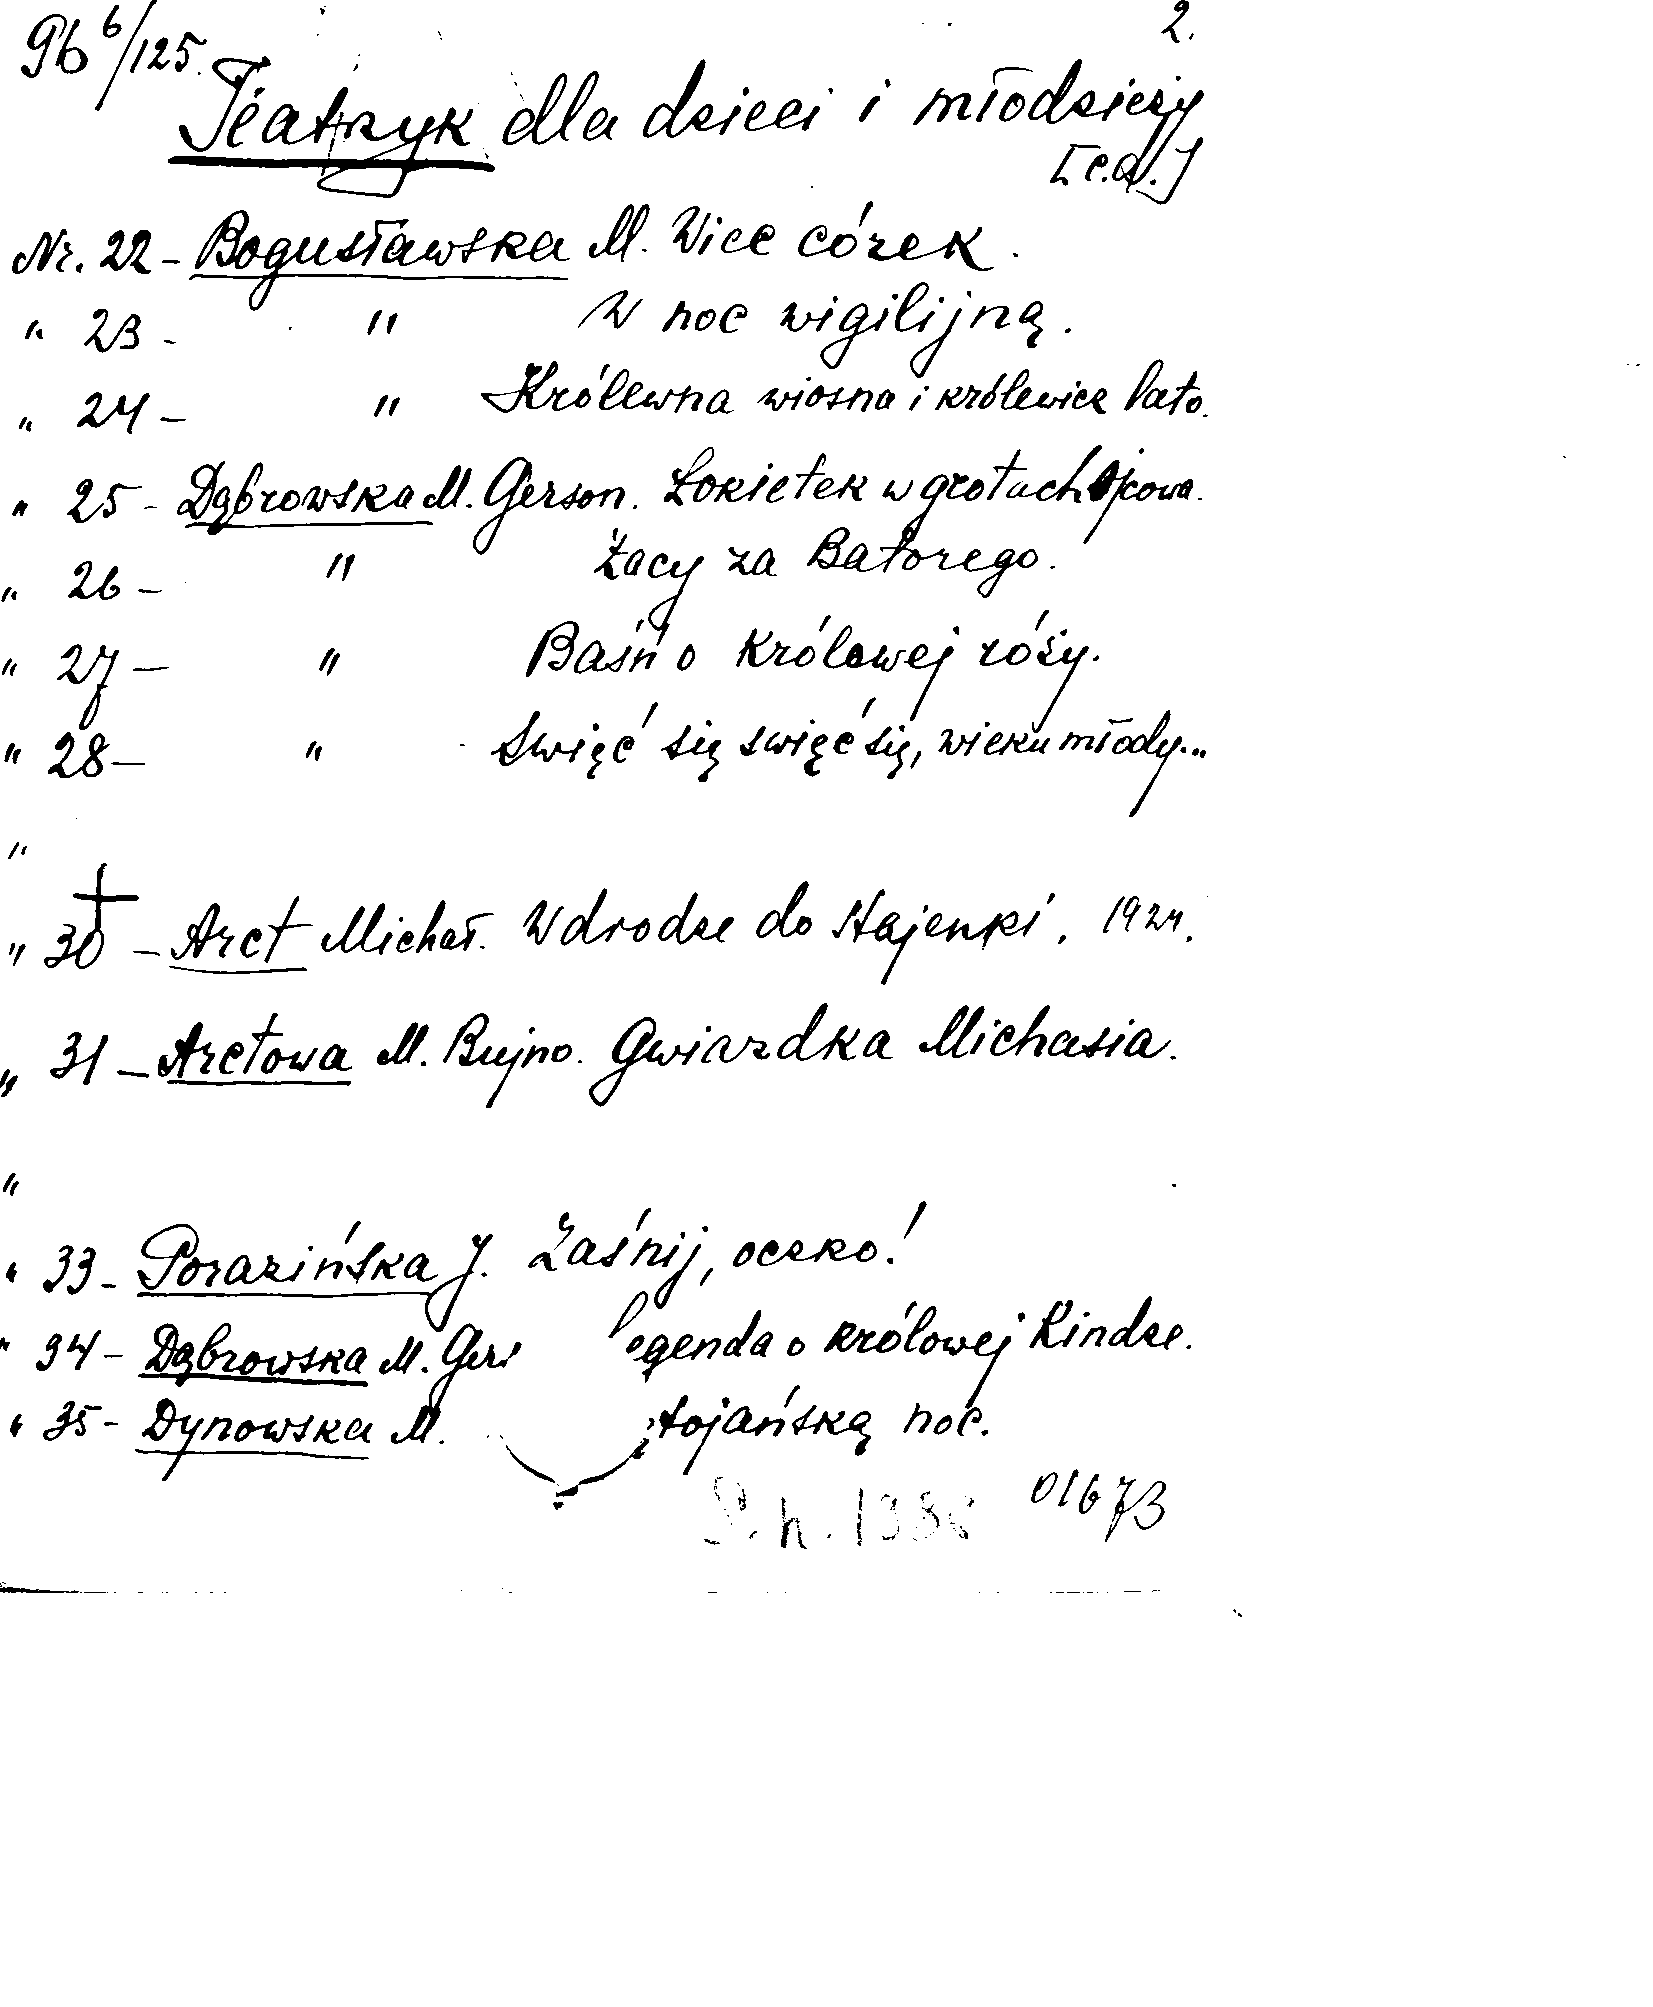 96 6/125. 2.
Teatrzyk dla dzieci i młodzieży
[c.d.]
Nr. 22 - Bogusławska M. Wiec córek.
" 23 - " W noc wigilijną.
" 24 - " Królewna wiosna i królewicz lato.
" 25 - Dąbrowska M. Gerson. Łokietek w grotach Ojcowa.
" 26 - " Żacy za Batorego.
" 27 - " Baśń o królowej róży.
" 28 - " Swięć się swięć się, wieku młody...
"
" 30 - Arct Michał. W drodze do stajenki. 1924.
" 31 - Arctowa M. Bujno. Gwiazdka Michasia.
"
" 33 - Porazińska J. Zaśnij, oczko!
" 34 - Dąbrowska M. Gers egenda o królowej Kindze.
" 35 - Dynowska M. tojańską noc.
01673